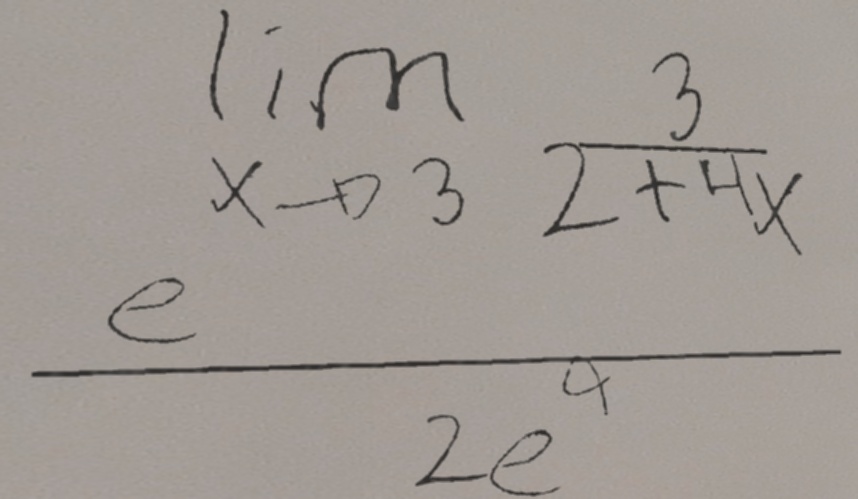 lim 3
x→3 2+4x
e
2e^4